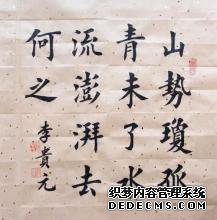 山勢瓊弧
青未了水
流澎湃去
何之
李貴元
织梦内容管理系统
DEDECMS.COM